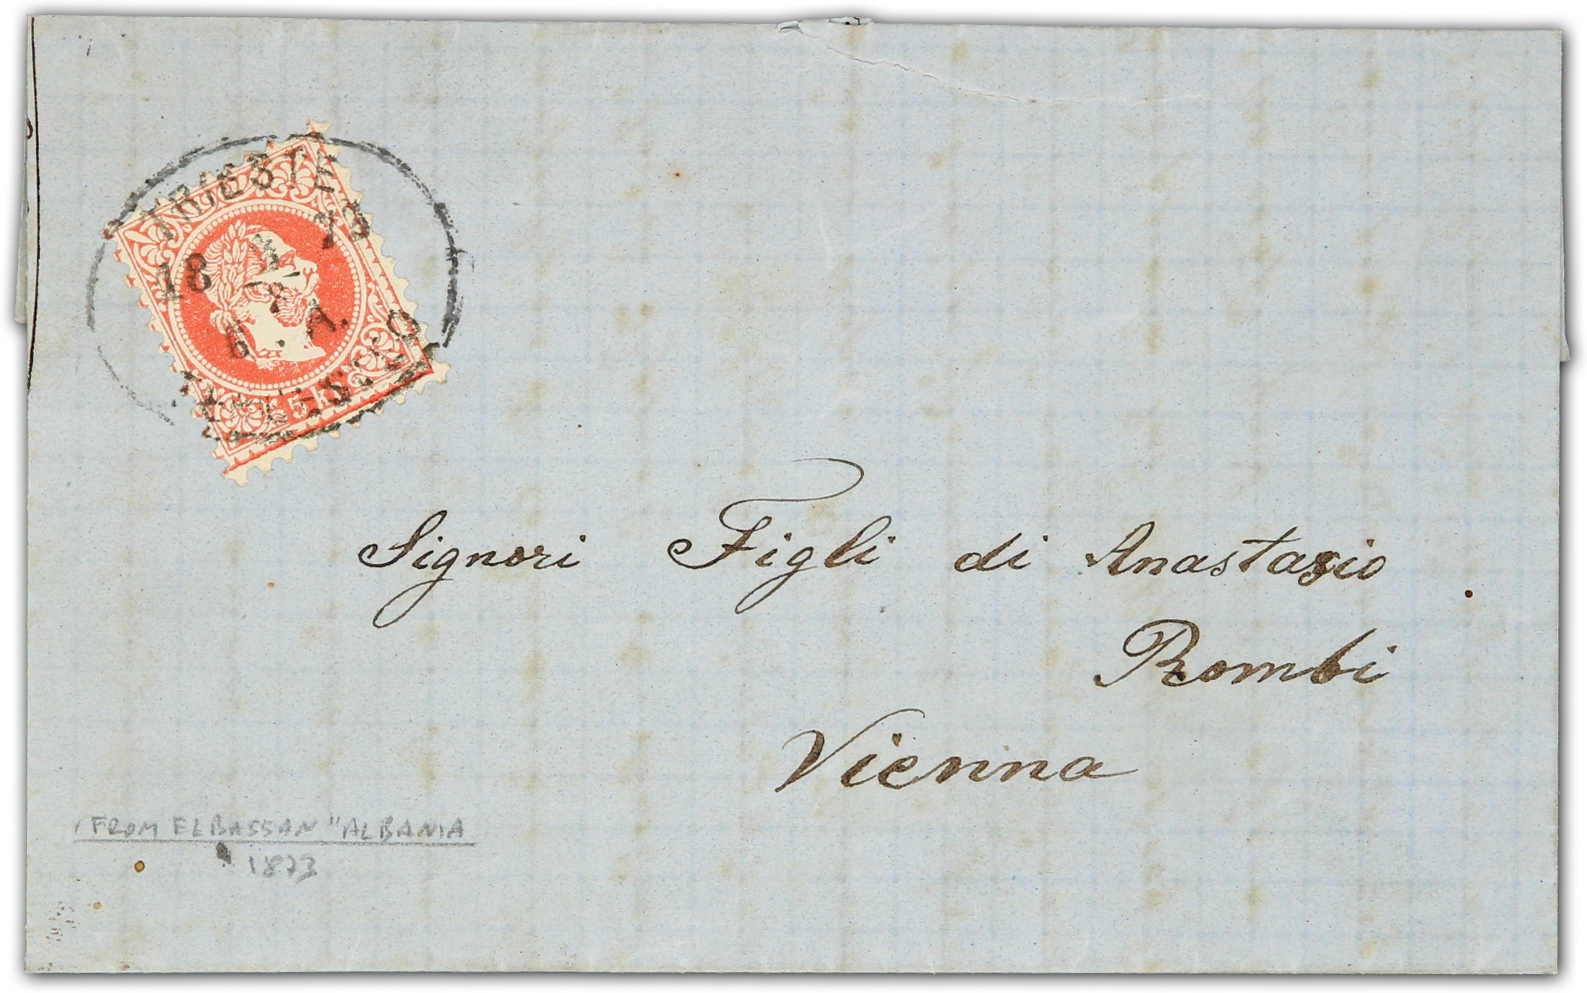 TRIESTE
18 73
6. A.
5
Signori Figli di Anastasio
Rombi
Vienna
(FROM ELBASSAN "ALBANIA
1873